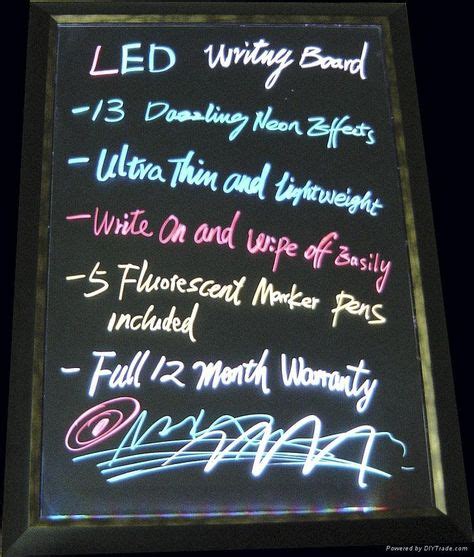 LED Writng Board
-13 Dazzling Neon Effects
-Ultra Thin and lightweight
-Write On and wipe off Easily
-5 Fluorescent Marker Pens
included
-Full 12 month Warranty
Powered by DIYTrade.com